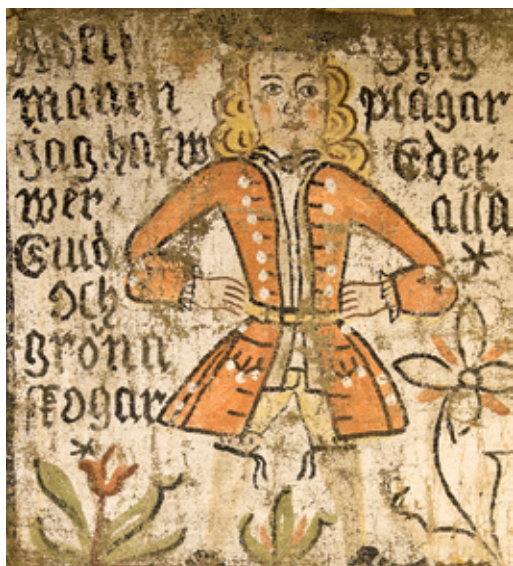 Adels
manen
jag hafw
wer
Guld
och
gröna
skogar
*
Jag
plågar
Eder
alla
*